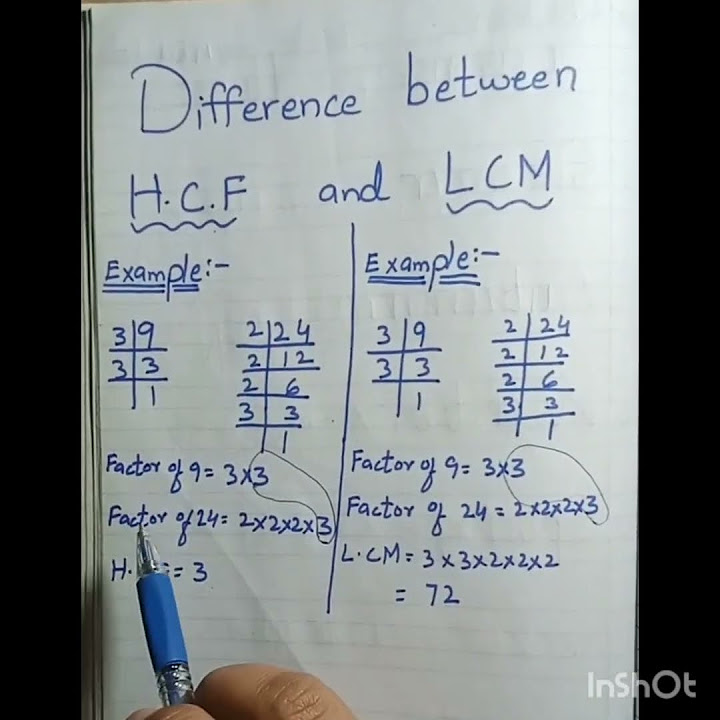 Difference between
H.C.F and LCM
Example:-
3 9
3 3
1
2 24
2 12
2 6
3 3
1
Factor of 9 = 3×3
Factor of 24 = 2×2×2×3
H. = 3
Example:-
3 9
3 3
1
2 24
2 12
2 6
3 3
1
Factor of 9 = 3×3
Factor of 24 = 2×2×2×3
L.CM = 3×3×2×2×2
= 72
InShOt